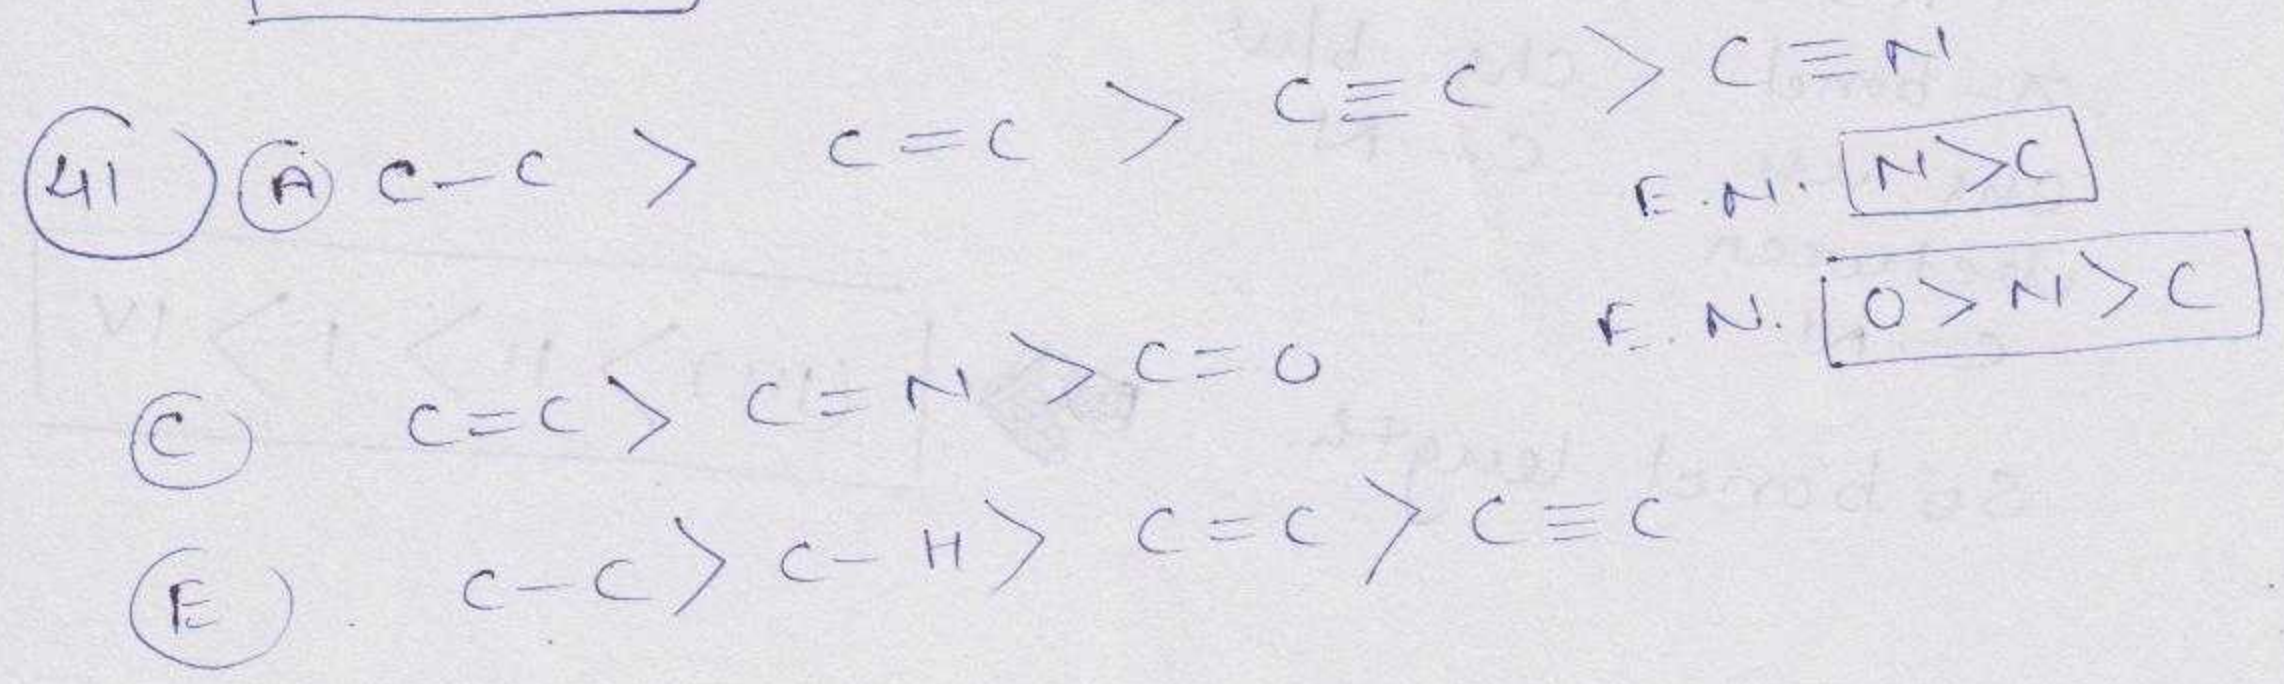 41) A C-C > C=C > C≡C > C≡N
E.N. N>C
E.N. O>N>C
C C=C > C=N > C=O
E C-C > C-H > C=C > C≡C